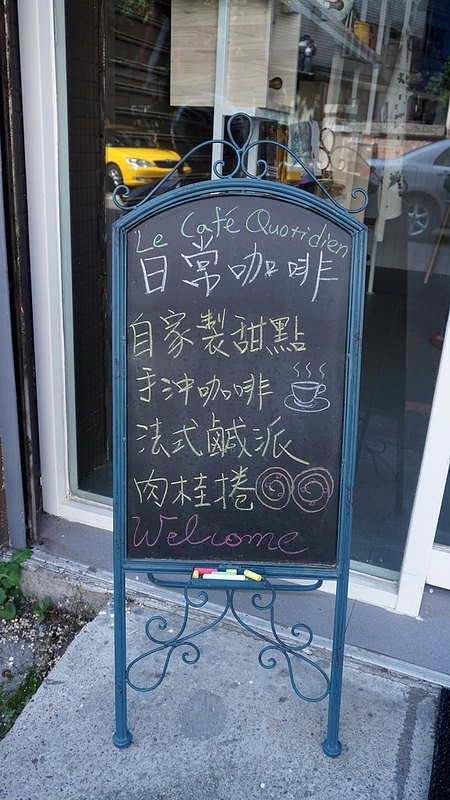 Le Café Quotidien
日常咖啡
自家製甜點
手沖咖啡
法式鹹派
肉桂捲
Welcome